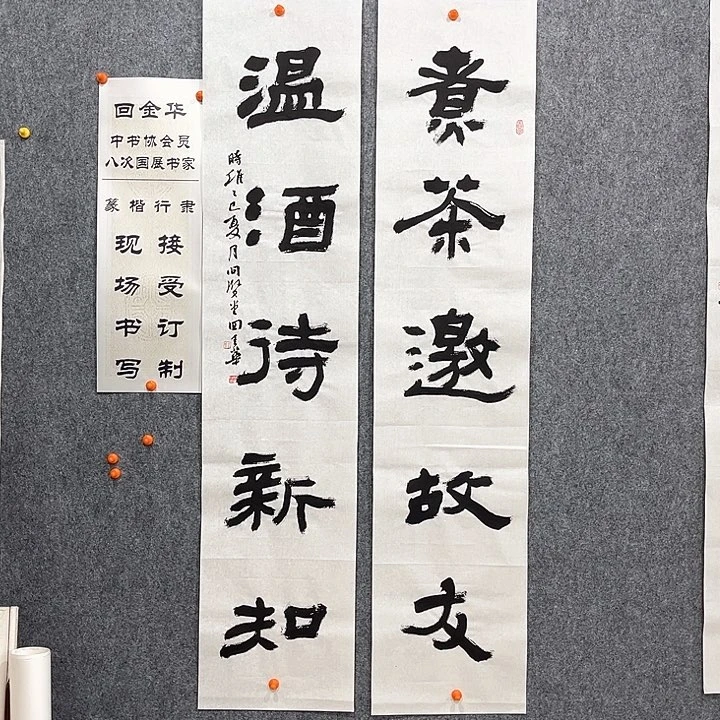 煮茶邀故友
温酒待新知
時維乙巳夏月問賢堂回金華
回金华
中书协会员
八次国展书家
篆楷行隶
接受订制
现场书写